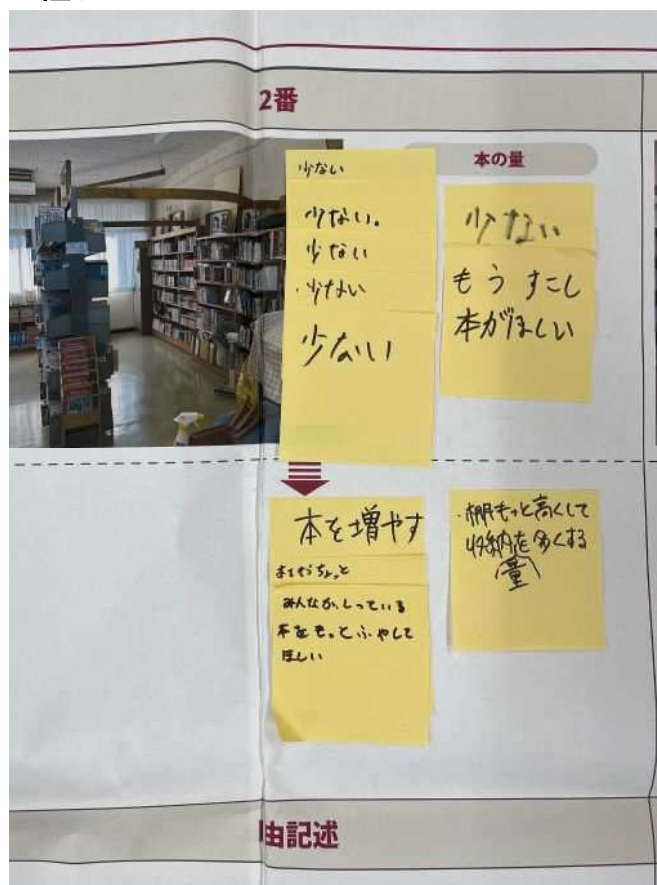 2番
少ない
少ない。
少ない
・少ない
少ない
本の量
少ない
もうすこし
本がほしい
本を増やす
本もうちょっと
みんながしっている
本をもっとふやして
ほしい
・棚もっと高くして
収納を多くする
量
由記述